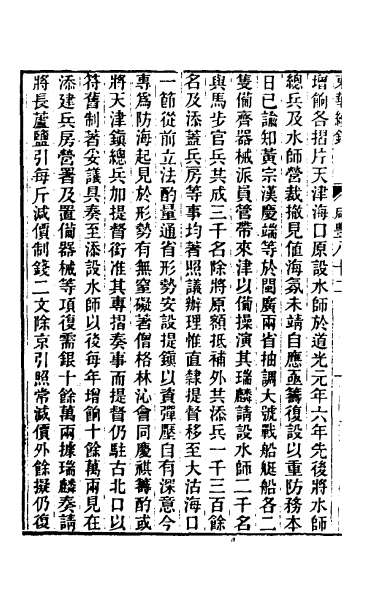 增餉各摺片天津海口原設水師於道光元年六年先後將水師
總兵及水師營裁撤見值海氛未靖自應亟籌復設以重防務本
日已諭知黃宗漢慶端等於閩廣兩省抽調大號戰船艇船各二
隻備齊器械派員管帶來津以備操演其瑞麟請設水師二千名
與馬步官兵共成三千名除將原額抵補外其添兵一千三百餘
名及添蓋兵房等事均著照議辦理惟直隸提督移至大沽海口
一節從前立法酌量通省形勢安設提鎭以資彈壓自有深意今
專爲防海起見於形勢有無窒礙著僧格林沁會同慶祺籌酌或
將天津鎭總兵加提督銜准其專摺奏事而提督仍駐古北口以
符舊制著妥議具奏至添設水師以後每年增餉十餘萬兩見在
添建兵房營署及置備器械等項復需銀十餘萬兩據瑞麟奏請
將長蘆鹽引每斤減價制錢二文除京引照常減價外餘擬仍復